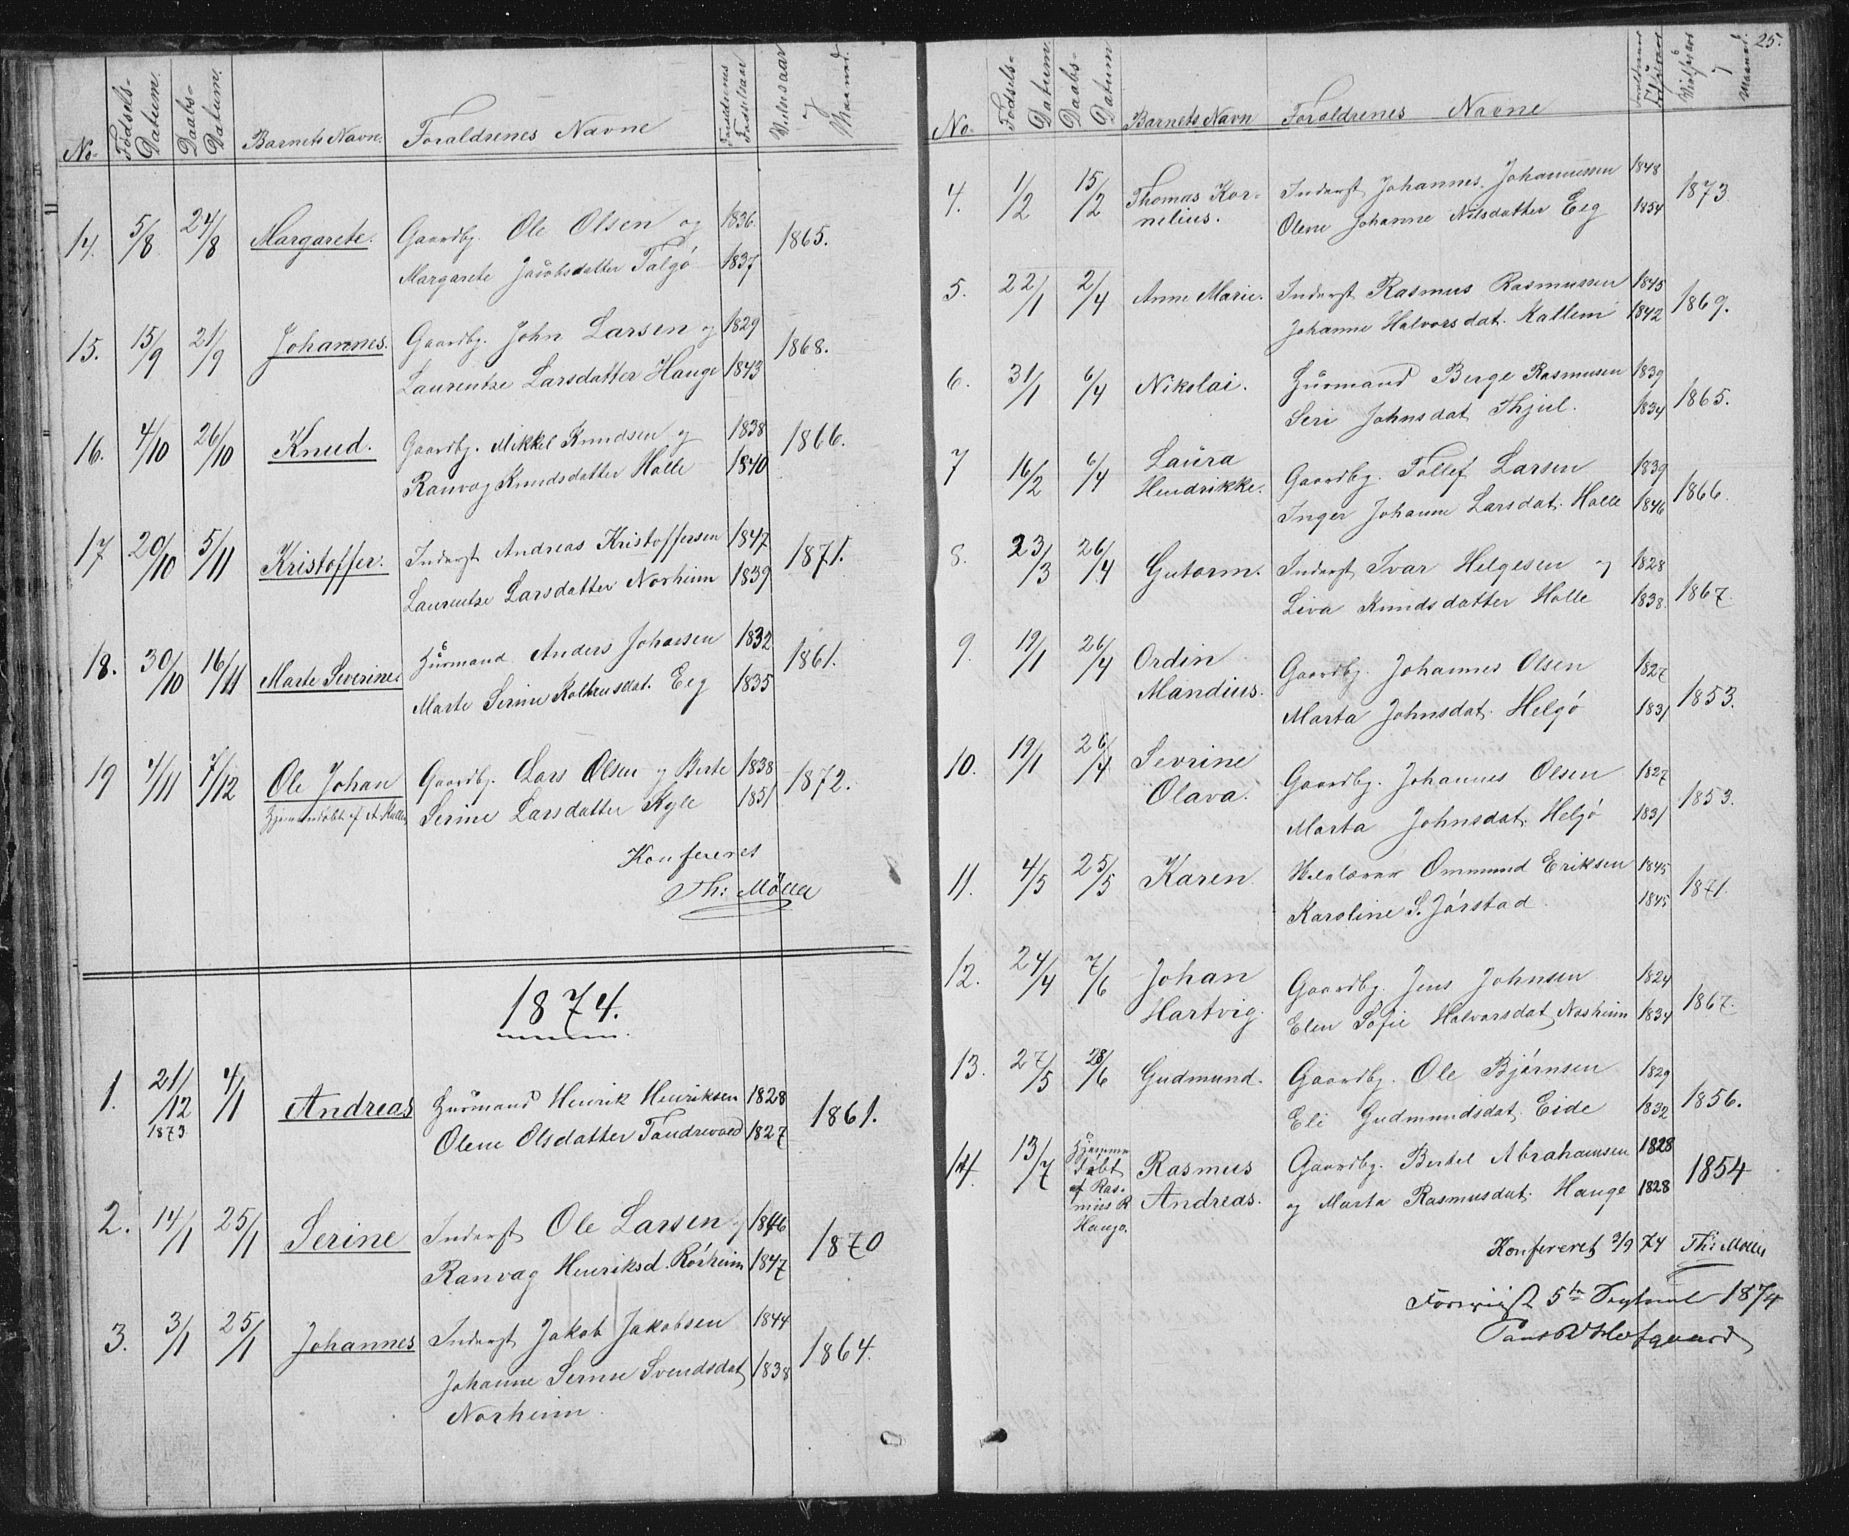 No. Fødsels-Datum. Daabs-Datum. Barnets Navn. Foraldrenes Navne Foraldrenes Fødselsaar Vielsesaar Maaned.
14. 5/8 24/8 Margarete. Gaardbg. Ole Olsen og 1836. 1865.
Margarete Jacobsdatter Talgö 1837
15. 15/9 21/9 Johannes. Gaardbg. John Larsen og 1829 1868.
Laurentze Larsdatter Hauge 1843
16. 4/10 26/10 Knud. Gaardbg. Mikkel Knudsen og 1838 1866.
Ranvag Knudsdatter Halle 1840
17 20/10 5/11 Kristoffer. Inderst Andreas Kristoffersen 1847 1871.
Laurentze Larsdatter Norheim 1839
18. 30/10 16/11 Marte Severine. Husmand Anders Johansen 1832 1861.
Marte Serine Eeg 1835
19 4/11 7/12 Ole Johan Gaardbg. Lars Olsen og Berte 1838 1872.
Serine Larsdatter Kyle 1851
Konfereret
Th: Møller
1874.
1. 21/12 1873 4/1 Andreas Husmand Henrik Henriksen 1828 1861.
Olene Olsdatter 1827
2. 14/1 25/1 Serine Inderst Ole Larsen og 1846 1870
Ranvag Henriksd. Rörheim 1847
3. 3/1 25/1 Johannes Inderst Jakob Jakobsen 1844 1864.
Johanne Serine Svendsdat 1838
Norheim.
25.
No. Fodsels-Datum Daabs-Datum Barnets Navn Foraldrenes Navne
4. 1/2 15/2 Thomas Kor- Inderst Johannes Johannessen 1848 1873
nelius. Olene Johanne Nilsdatter Eeg 1854
5. 22/1 2/4 Anne Marie. Inderst Rasmus Rasmussen 1845 1869.
Johanne Halvorsdat. Kallem 1842
6. 31/1 6/4 Nikolai. Husmand Berge Rasmusen 1839 1865.
Seri Johnsdat Thjul. 1834
7 16/2 6/4 Laura Gaardbg. Tollef Larsen 1839 1866.
Hendrikke. Inger Johanne Larsdat. Halle 1846
8. 23/3 26/4 Gutorm. Inderst Ivar Helgesen og 1828 1867
Liva Knudsdatter Halle 1838.
9. 19/1 26/4 Ordin Gaardbg. Johannes Olsen 1827 1853.
Mandius. Marta Johnsdat. Helgö 1831
10. 19/1 26/4 Sevrine Gaardbg. Johannes Olsen 1827 1853.
Olava. Marta Johnsdat. Helgö 1831
11. 4/5 25/5 Karen. Ommund Eriksen 1845 1871.
Karoline S. Jörstad. 1845
12. 24/4 7/6 Johan Gaardbg. Jens Johnsen 1824 1867.
Hartvig. Elen Sofie Halvorsdat. Nosheim 1834
13. 27/5 28/6 Gudmund. Gaardbg. Ole Bjørnsen 1829 1856.
Eli Gudmundsdat. Eide 1832
14. 13/7 Hjemme Rasmus Gaardbg. Bertel Abrahamsen 1828 1854
døbt Andreas. og Marta Rasmusdat. Hauge 1828
af Ras-
mus R
Hauge.
Konfereret 3/9 74 Th: Møller
5te 1874